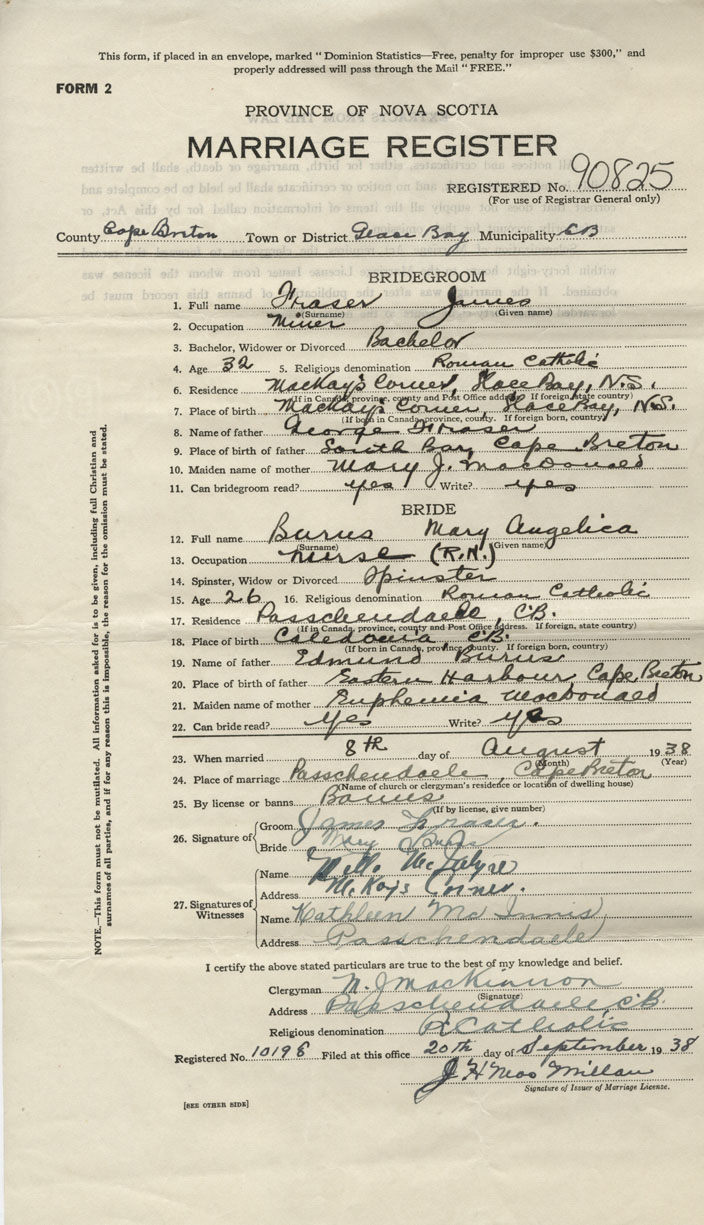 This form, if placed in an envelope, marked "Dominion Statistics—Free, penalty for improper use $300," and
properly addressed will pass through the Mail "FREE."
FORM 2
PROVINCE OF NOVA SCOTIA
MARRIAGE REGISTER
REGISTERED No. 90825
(For use of Registrar General only)
County Cape Breton Town or District Glace Bay Municipality CB
BRIDEGROOM
1. Full name Fraser James
(Surname) (Given name)
2. Occupation Miner
3. Bachelor, Widower or Divorced Bachelor
4. Age 32 5. Religious denomination Roman Catholic
6. Residence MacKay's Corner, Glace Bay, N.S.
(If in Canada, province, county and Post Office address. If foreign, state country)
7. Place of birth MacKay's Corner, Glace Bay, N.S.
(If born in Canada, province, county. If foreign born, country)
8. Name of father George Fraser
9. Place of birth of father South Bar, Cape Breton
10. Maiden name of mother Mary J. MacDonald
11. Can bridegroom read? yes Write? yes
BRIDE
12. Full name Burns Mary Angelica
(Surname) (Given name)
13. Occupation nurse (R.N.)
14. Spinster, Widow or Divorced Spinster
15. Age 26 16. Religious denomination Roman Catholic
17. Residence Passchendaele, C.B.
(If in Canada, province, county and Post Office address. If foreign, state country)
18. Place of birth Caledonia, C.B.
(If born in Canada, province, county. If foreign born, country)
19. Name of father Edmund Burns
20. Place of birth of father Eastern Harbour, Cape Breton
21. Maiden name of mother Euphemia MacDonald
22. Can bride read? yes Write? yes
23. When married 8th day of August 1938
(Month) (Year)
24. Place of marriage Passchendaele, Cape Breton
(Name of church or clergyman's residence or location of dwelling house)
25. By license or banns Banns
(If by license, give number)
26. Signature of Groom James Fraser.
Bride Mary Burns
27. Signatures of Witnesses
Name McIntyre
Address McKay's Corner.
Name Kathleen McInnis
Address Passchendaele
I certify the above stated particulars are true to the best of my knowledge and belief.
Clergyman MacKinnon
(Signature)
Address Passchendaele C.B.
Religious denomination R. Catholic
Registered No. 10198 Filed at this office 20th day of September 1938
J H MacMillan
Signature of Issuer of Marriage License.
[SEE OTHER SIDE]
NOTE.—This form must not be mutilated. All information asked for is to be given, including full Christian and
surnames of all parties, and if for any reason this is impossible, the reason for the omission must be stated.